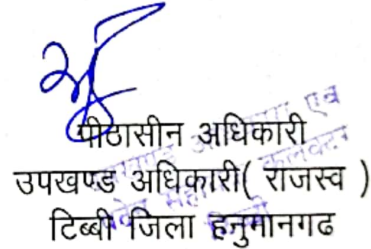 पीठासीन अधिकारी
उपखण्ड अधिकारी( राजस्व )
टिब्बी जिला हनुमानगढ